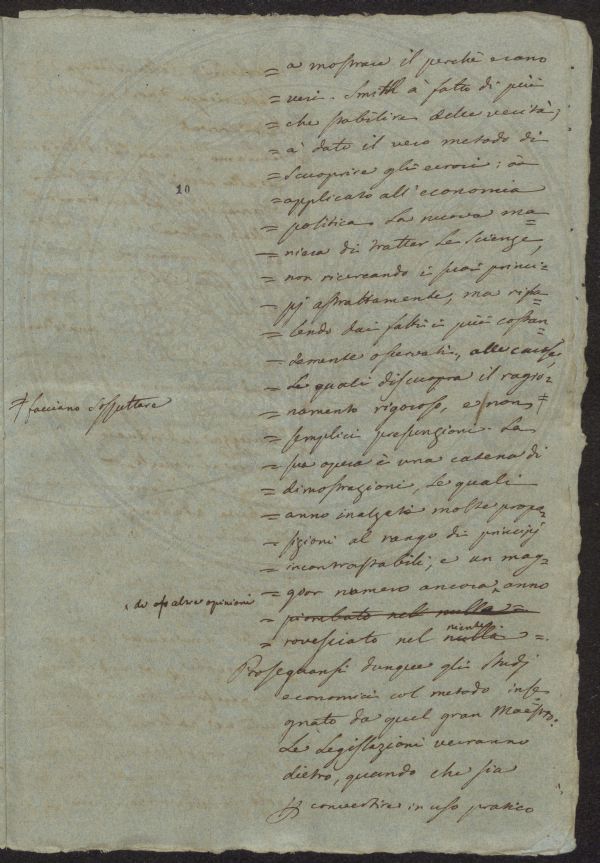 = a mostrare il perchè erano
= veri. Smith à fatto di più
= che stabilire delle verità;
= à dato il vero metodo di
= scuoprire gli errori: à
= applicato all'economia
= politica la nuova ma=
= niera di trattar le Scienze,
= non ricercando i suoi princi=
= pj astrattamente, ma risa=
= lendo dai fatti i più costan=
= temente osservati, alle cause,
= Le quali discuopra il ragio=
= namento rigoroso, e non ‡
‡ facciano sospettare
= semplici presunzioni. La
= sua opera è una catena di
= dimostrazioni, Le quali
= anno inalzato molte propo=
= sizioni al rango di principj
= incontrastabili; e un mag=
= gior numero ancora ^ anno
^ di altre opinioni
= piombato nel nulla =
= rovesciato nel nulla =.
niente
Proseguansi dunque gli studj
economici col metodo inse
gnato da quel gran Maestro.
Le Legislazioni verranno
dietro, quando che sia
convertire in uso pratico
10